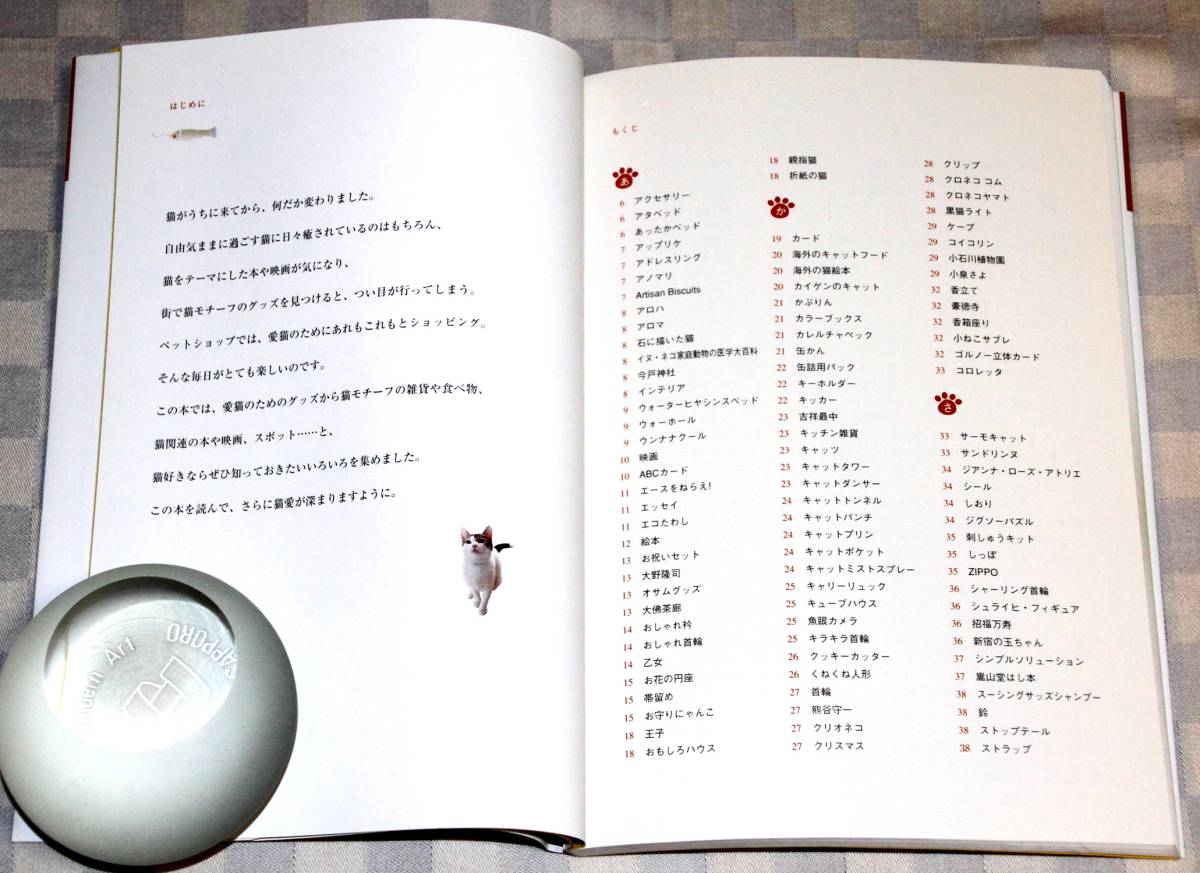 はじめに
猫がうちに来てから、何だか変わりました。
自由気ままに過ごす猫に日々癒されているのはもちろん、
猫をテーマにした本や映画が気になり、
街で猫モチーフのグッズを見つけると、つい目が行ってしまう。
ペットショップでは、愛猫のためにあれもこれもとショッピング。
そんな毎日がとても楽しいのです。
この本では、愛猫のためのグッズから猫モチーフの雑貨や食べ物、
猫関連の本や映画、スポット……と、
猫好きならぜひ知っておきたいいろいろを集めました。
この本を読んで、さらに猫愛が深まりますように。
Art
SAPPORO
もくじ
あ
6 アクセサリー
6 アタベッド
6 あったかベッド
7 アップリケ
7 アドレスリング
7 アノマリ
7 Artisan Biscuits
8 アロハ
8 アロマ
8 石に描いた猫
8 イヌ・ネコ家庭動物の医学大百科
8 今戸神社
8 インテリア
9 ウォーターヒヤシンスベッド
9 ウォーホール
9 ウンナナクール
10 映画
10 ABCカード
11 エースをねらえ!
11 エッセイ
11 エコたわし
12 絵本
13 お祝いセット
13 大野隆司
13 オサムグッズ
13 大佛茶廊
14 おしゃれ衿
14 おしゃれ首輪
14 乙女
15 お花の円座
15 帯留め
15 お守りにゃんこ
18 王子
18 おもしろハウス
18 親指猫
18 折紙の猫
か
19 カード
20 海外のキャットフード
20 海外の猫絵本
20 カイゲンのキャット
21 かぶりん
21 カラーブックス
21 カレルチャペック
21 缶かん
22 缶詰用パック
22 キーホルダー
22 キッカー
23 吉祥最中
23 キッチン雑貨
23 キャッツ
23 キャットタワー
23 キャットダンサー
24 キャットトンネル
24 キャットパンチ
24 キャットプリン
24 キャットポケット
24 キャットミストスプレー
25 キャリーリュック
25 キューブハウス
25 魚眼カメラ
25 キラキラ首輪
26 クッキーカッター
26 くねくね人形
27 首輪
27 熊谷守一
27 クリオネコ
27 クリスマス
28 クリップ
28 クロネコ コム
28 クロネコヤマト
28 黒猫ライト
29 ケープ
29 コイコリン
29 小石川植物園
29 小泉さよ
32 香立て
32 豪徳寺
32 香箱座り
32 小ねこサブレ
32 ゴルノー立体カード
33 コロレッタ
さ
33 サーモキャット
33 サンドリンヌ
34 ジアンナ・ローズ・アトリエ
34 シール
34 しおり
34 ジグソーパズル
35 刺しゅうキット
35 しっぽ
35 ZIPPO
36 シャーリング首輪
36 シュライヒ・フィギュア
36 招福万寿
36 新宿の玉ちゃん
37 シンプルソリューション
37 嵩山堂はし本
38 スーシングサッズシャンプー
38 鈴
38 ストップテール
38 ストラップ